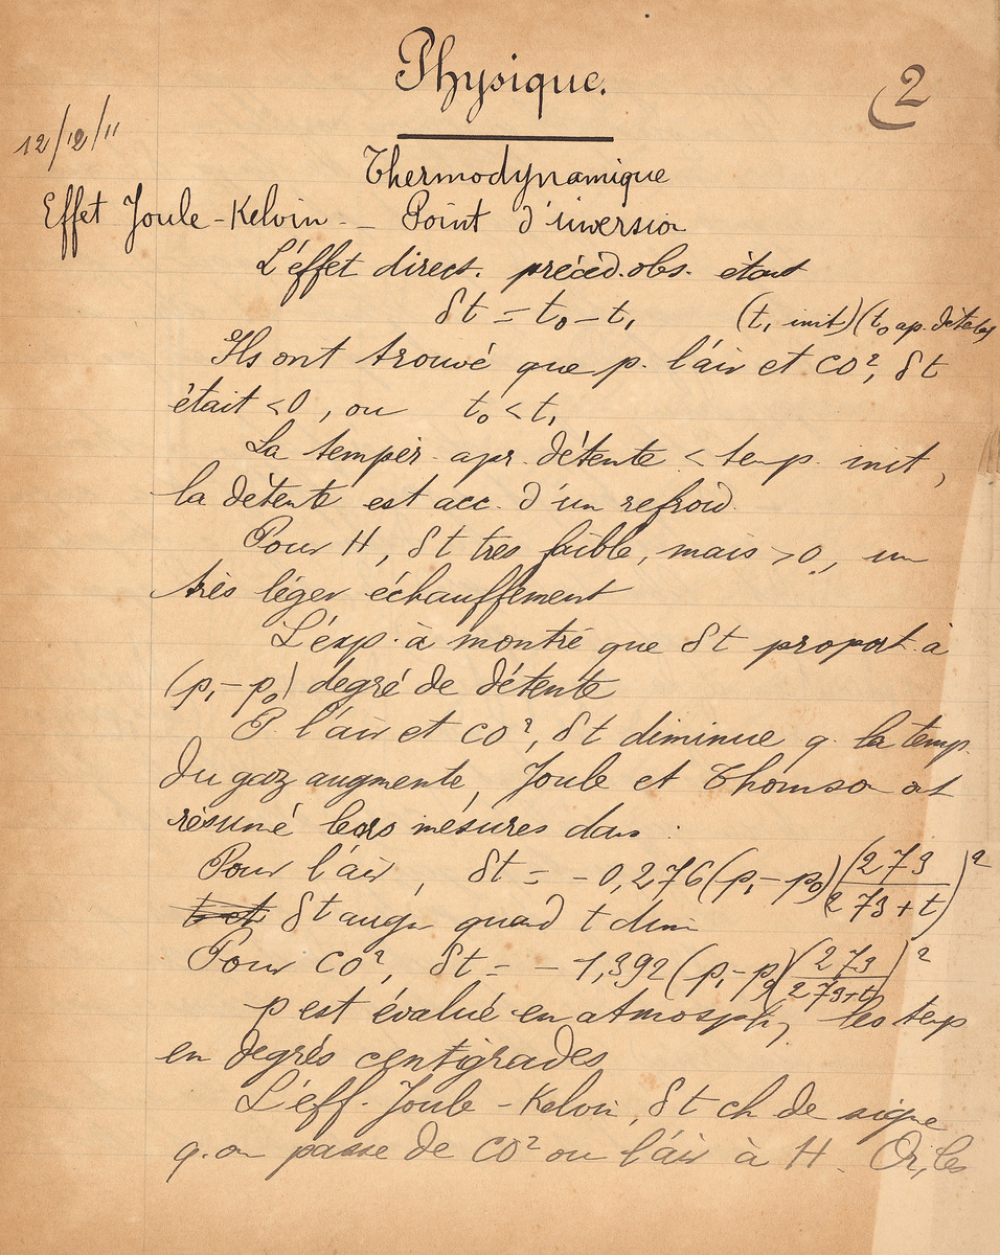 Physique.
2
12/12/11
Thermodynamique
Effet Joule-Kelvin - Point d'inversion
L'effet direct. précéd. obs. étant
δt = t₀ - t₁ (t₁ init) (t₀ ap. détente)
Ils ont trouvé que p. l'air et CO², δt
était <0, ou t₀ < t₁
La tempér. apr. détente < temp. init,
la détente est acc. d'un refroid.
Pour H, δt très faible, mais >0, un
très léger échauffement
L'exp. à montré que δt proport. à
(p₁ - p₀) degré de détente
P. l'air et CO², δt diminue q. la temp.
du gaz augmente, Joule et Thomson ont
résumé leurs mésures dans :
Pour l'air, δt = - 0,276 (p₁ - p₀) (273 / 273 + t)²
t et δt augm quand t dim
Pour CO², δt = - 1,392 (p₁ - p₀) (273 / 273 + t)²
p est évalué en atmosph, les temp
en degrés centigrades
L'eff. Joule-Kelvin, δt ch de signe
q. on passe de CO² ou l'air à H. Or, les